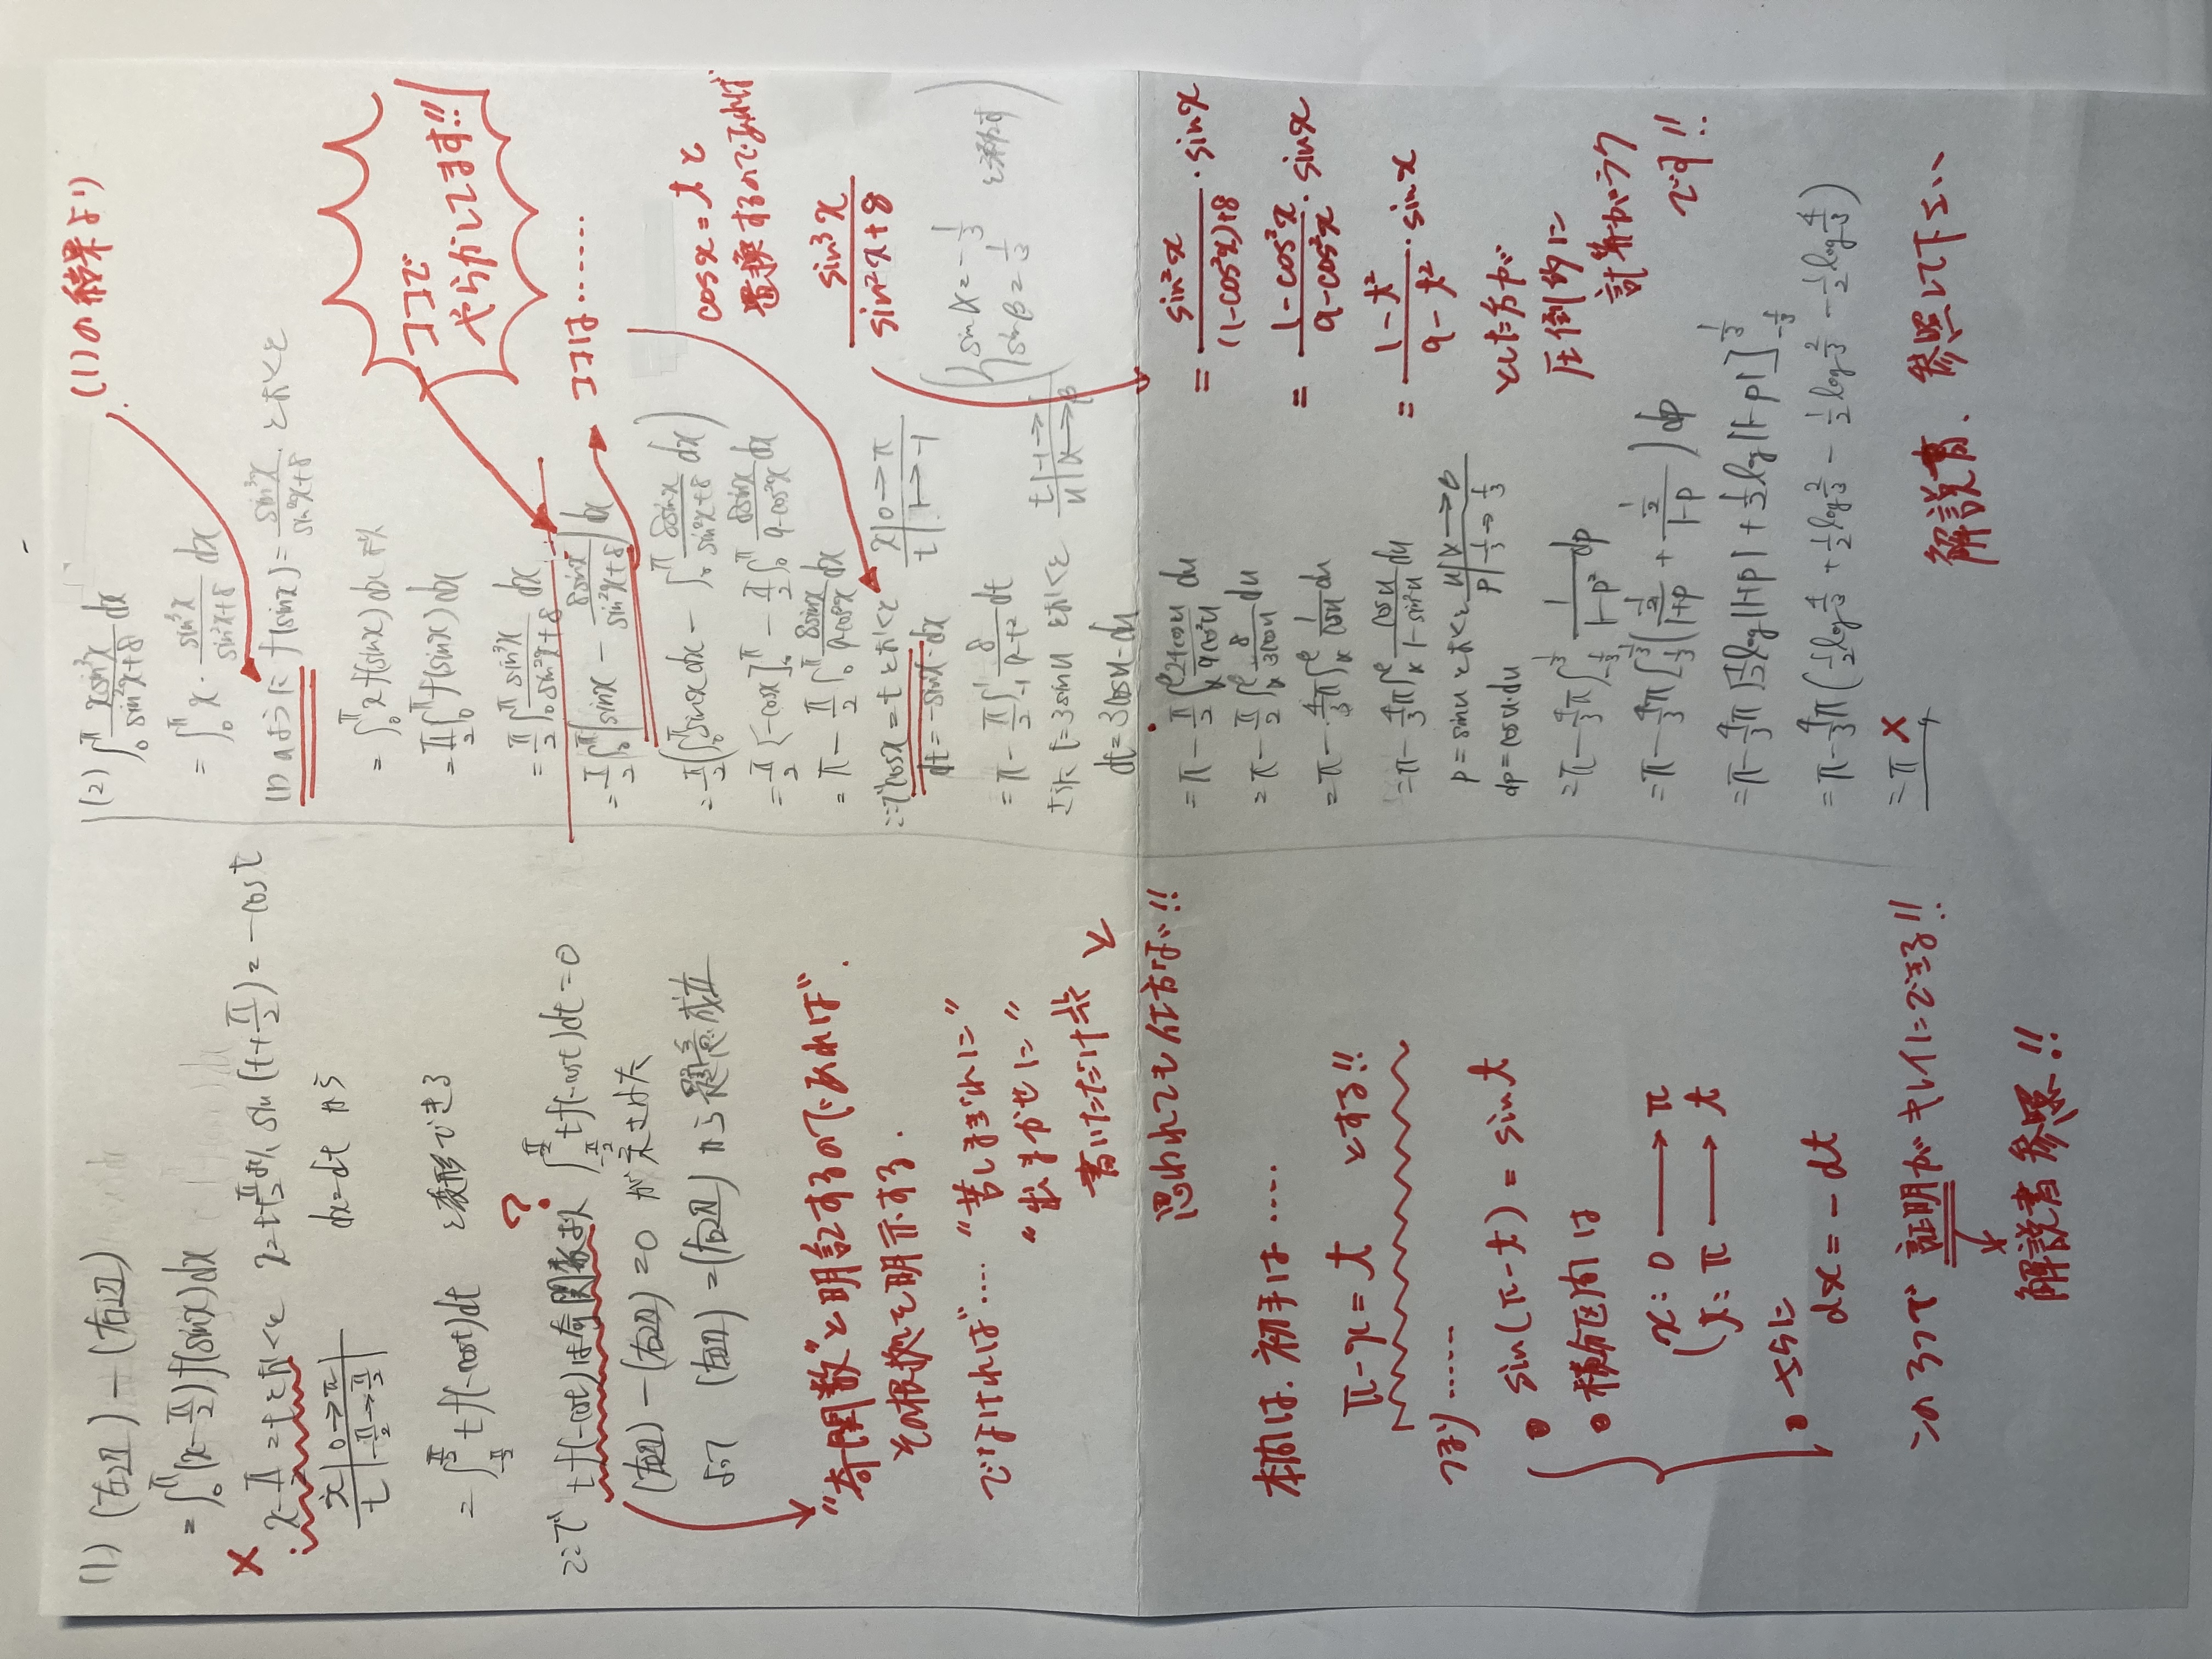 (1) (左辺) − (右辺)
= ∫₀^π (x − π/2) f(sinx) dx
×
x − π/2 = t とおくと x = t + π/2 より sin(t + π/2) = −cost
x | 0 → π
t | −π/2 → π/2
dx = dt から
= ∫_{−π/2}^{π/2} t f(−cost) dt と変形できる
?
ここで t f(−cost) は奇関数より ∫_{−π/2}^{π/2} t f(−cost) dt = 0
(左辺) − (右辺) = 0 が示された
よって (左辺) = (右辺) から題意成立
"奇関数"と明記するのであれば、
その根拠を明示する.
でなければ…… "苦しまぎれに"
"出まかせに"
書いただけ と
思われても仕方ない!!
本問は、初手は……
π − x = t とする!!
つまり……
● sin(π − t) = sin t
● 積分区間は
x: 0 → π
t: π → t
● さらに
dx = −dt
この3つで 証明がキレイにできる!!
解説書参照!!
(2) ∫₀^π xsin³x/(sin²x+8) dx
= ∫₀^π x · sin³x/(sin²x+8) dx
(1)の結果より
(1)のように f(sinx) = sin³x/(sin²x+8) とおくと
= ∫₀^π x f(sinx) dx より
= π/2 ∫₀^π f(sinx) dx
= π/2 ∫₀^π sin³x/(sin²x+8) dx
ココで
やらかしてます!!
= π/2 ∫₀^π (sinx − 8sinx/(sin²x+8)) dx
ココは……
= π/2 (∫₀^π sinx dx − ∫₀^π 8sinx/(sin²x+8) dx)
= π/2 [−cosx]₀^π − π/2 ∫₀^π 8sinx/(9−cos²x) dx
= π − π/2 ∫₀^π 8sinx/(9−cos²x) dx
cosx = t と
置換するのであれば
ここで cosx = t とおくと
x | 0 → π
t | 1 → −1
dt = −sinx · dx
sin³x/(sin²x+8)
= π − π/2 ∫_{−1}^{1} 8/(9−t²) dt
さらに t = 3sinu とおくと
t | −1 → 1
u | α → β
(sinα = −1/3
sinβ = 1/3 と示す)
dt = 3cosu · du
= π − π/2 ∫_α^β 24cosu/9cos²u du
= π − π/2 ∫_α^β 8/3cosu du
= π − 4/3 π ∫_α^β 1/cosu du
= π − 4/3 π ∫_α^β cosu/(1−sin²u) du
p = sinu とおくと
u | α → β
p | −1/3 → 1/3
dp = cosu · du
= π − 4/3 π ∫_{−1/3}^{1/3} 1/(1−p²) dp
= π − 4/3 π ∫_{−1/3}^{1/3} (1/2/(1+p) + 1/2/(1−p)) dp
= π − 4/3 π [1/2 log|1+p| + 1/2 log|1−p|]_{−1/3}^{1/3}
= π − 4/3 π (1/2 log 4/3 + 1/2 log 2/3 − 1/2 log 2/3 − 1/2 log 4/3)
= π
×
= sin²x/((1−cos²x)+8) · sinx
= (1−cos²x)/(9−cos²x) · sinx
= (1−t²)/(9−t²) · sinx
とした方が
圧倒的に
計算がラク
です!!
解説書、参照して下さい、